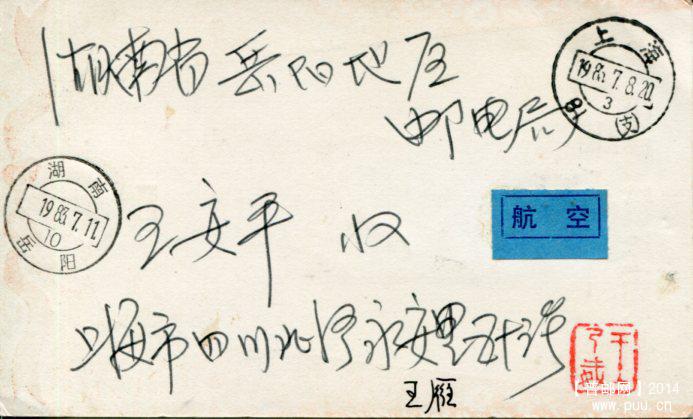 湖南省岳阳地区
邮电局
上海
1983.7.8.20
3
(支)
湖南
1983.7.11
10
岳阳
王安平 收
航空
上海市四川北路永安里五十号
王雁
【普邮网】2014
www.puu.cn